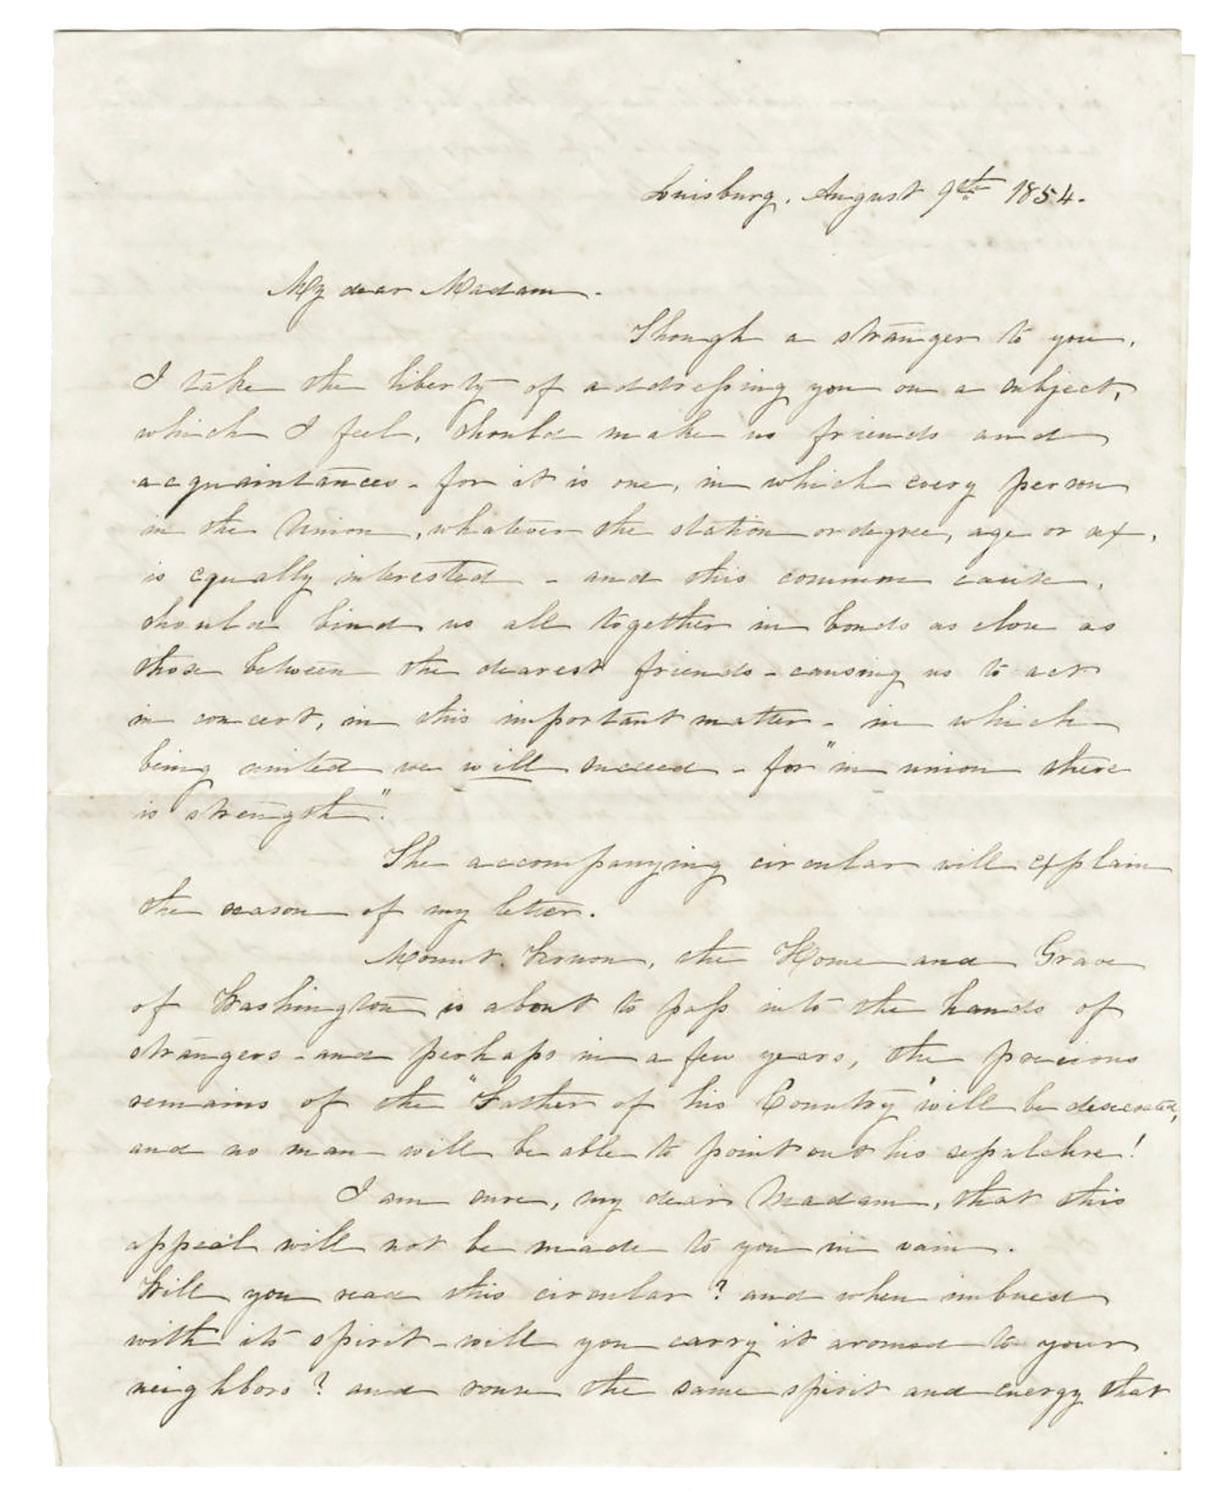 Luisburg, August 9th 1854.
My dear Madam.
Though a stranger to you,
I take the liberty of addressing you on a subject,
which I feel, should make us friends and
acquaintances - for it is one, in which every person
in the Union, whatever the station or degree, age or sex,
is equally interested - and this common cause,
should bind us all together in bonds as close as
those between the dearest friends - causing us to act
in concert, in this important matter - in which
being united we will succeed - for "in union there
is strength".
The accompanying circular will explain
the reason of my letter.
Mount Vernon, the Home and Grave
of Washington is about to pass into the hands of
strangers - and perhaps in a few years, the precious
remains of the "Father of his Country" will be desecrated,
and no man will be able to point out his sepulchre!
I am sure, my dear Madam, that this
appeal will not be made to you in vain.
Will you read this circular? and when imbued
with its spirit - will you carry it around to your
neighbors? and rouse the same spirit and energy that